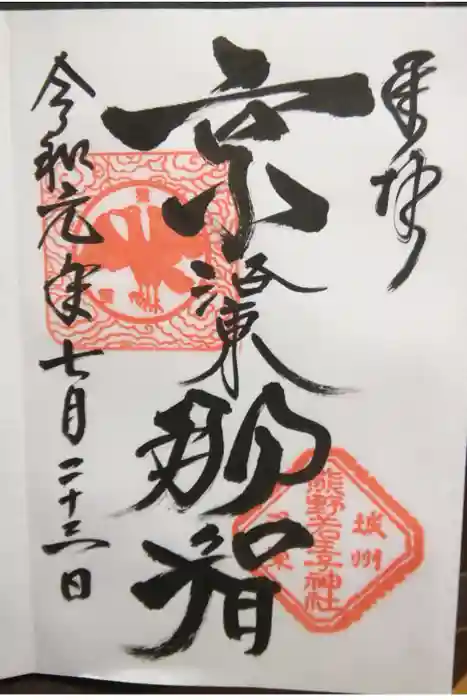 奉拝
京
洛東
那智
令和元年七月二十三日
熊野若王子神社
城州